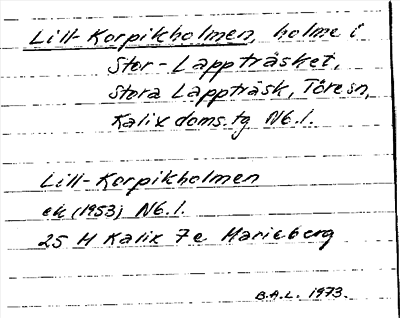 Lill-Korpikholmen, holme i
Stor-Lappträsket,
Stora Lappträsk, Töresn,
Kalix doms.tg Nb.l.
Lill-Korpikholmen
ek (1953) Nb.l.
25 M Kalix 7e Marieberg
B.A.L. 1973.